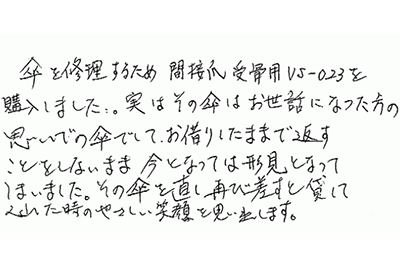 傘を修理するため 間接爪 受骨用 VS-023を
購入しました。実はその傘はお世話になった方の
思いでの傘でして、お借りしたままで返す
ことをしないまま 今となっては形見となって
しまいました。その傘を直し再び差すと貸して
くれた時のやさしい笑顔を思い出します。